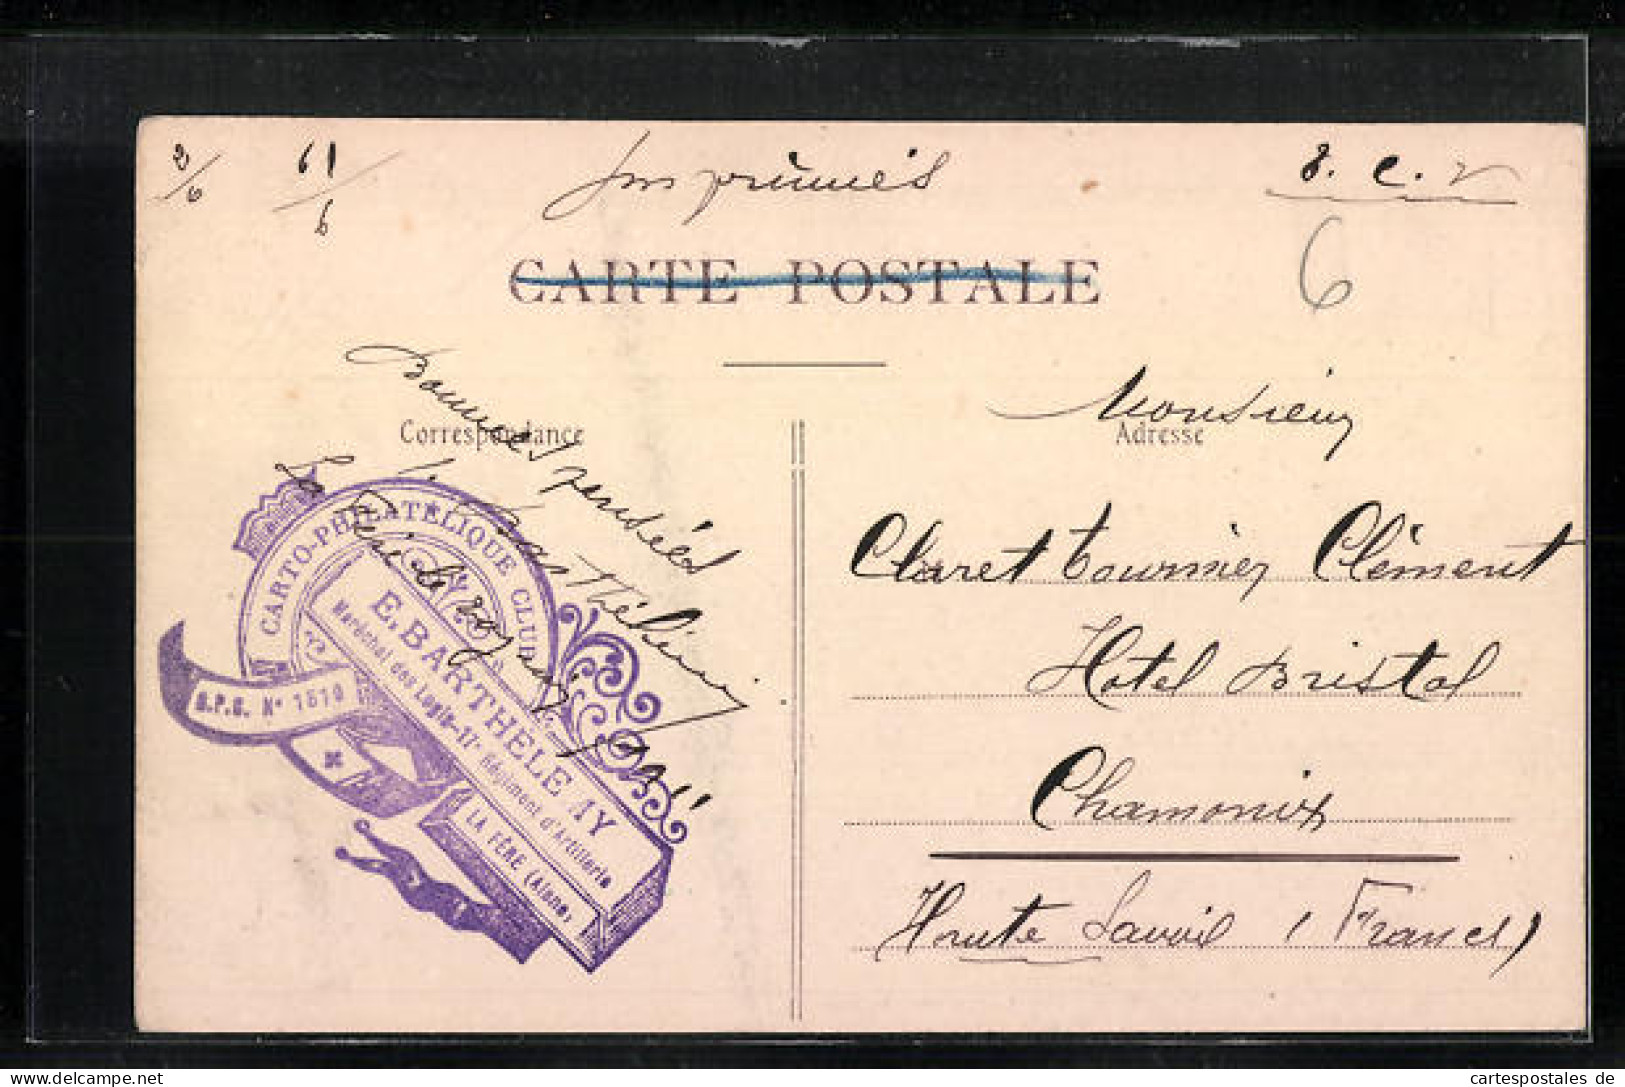 2/6
61/6
Imprimés
8. C. V
CARTE POSTALE
6
Correspondance
Bonnes pensées
Barthélemy
La Fère le
CARTO-PHILATÉLIQUE CLUB
E. BARTHELEMY
Maréchal des Logis-17e Régiment d'Artillerie
LA FÈRE (Aisne)
C.P.C. No 1510
Adresse
Monsieur
Claret Tournier Clément
Hotel Bristol
Chamonix
Haute Savoie (France)
cartespostales de